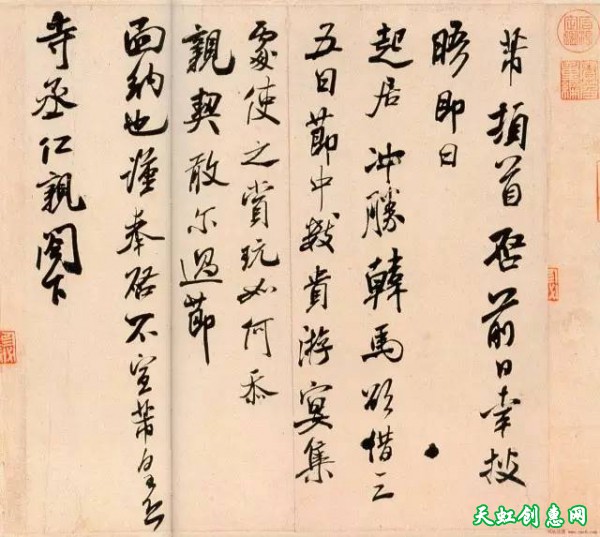 芾頓首啓前日幸披
晤即日
起居冲勝韓馬欲借三
五日節中數貴游宴集
處使之賞玩如何忝
親契敢尔過節
面納也謹奉啓不宣芾皇恐
寺丞仁親閣下
天虹创惠网